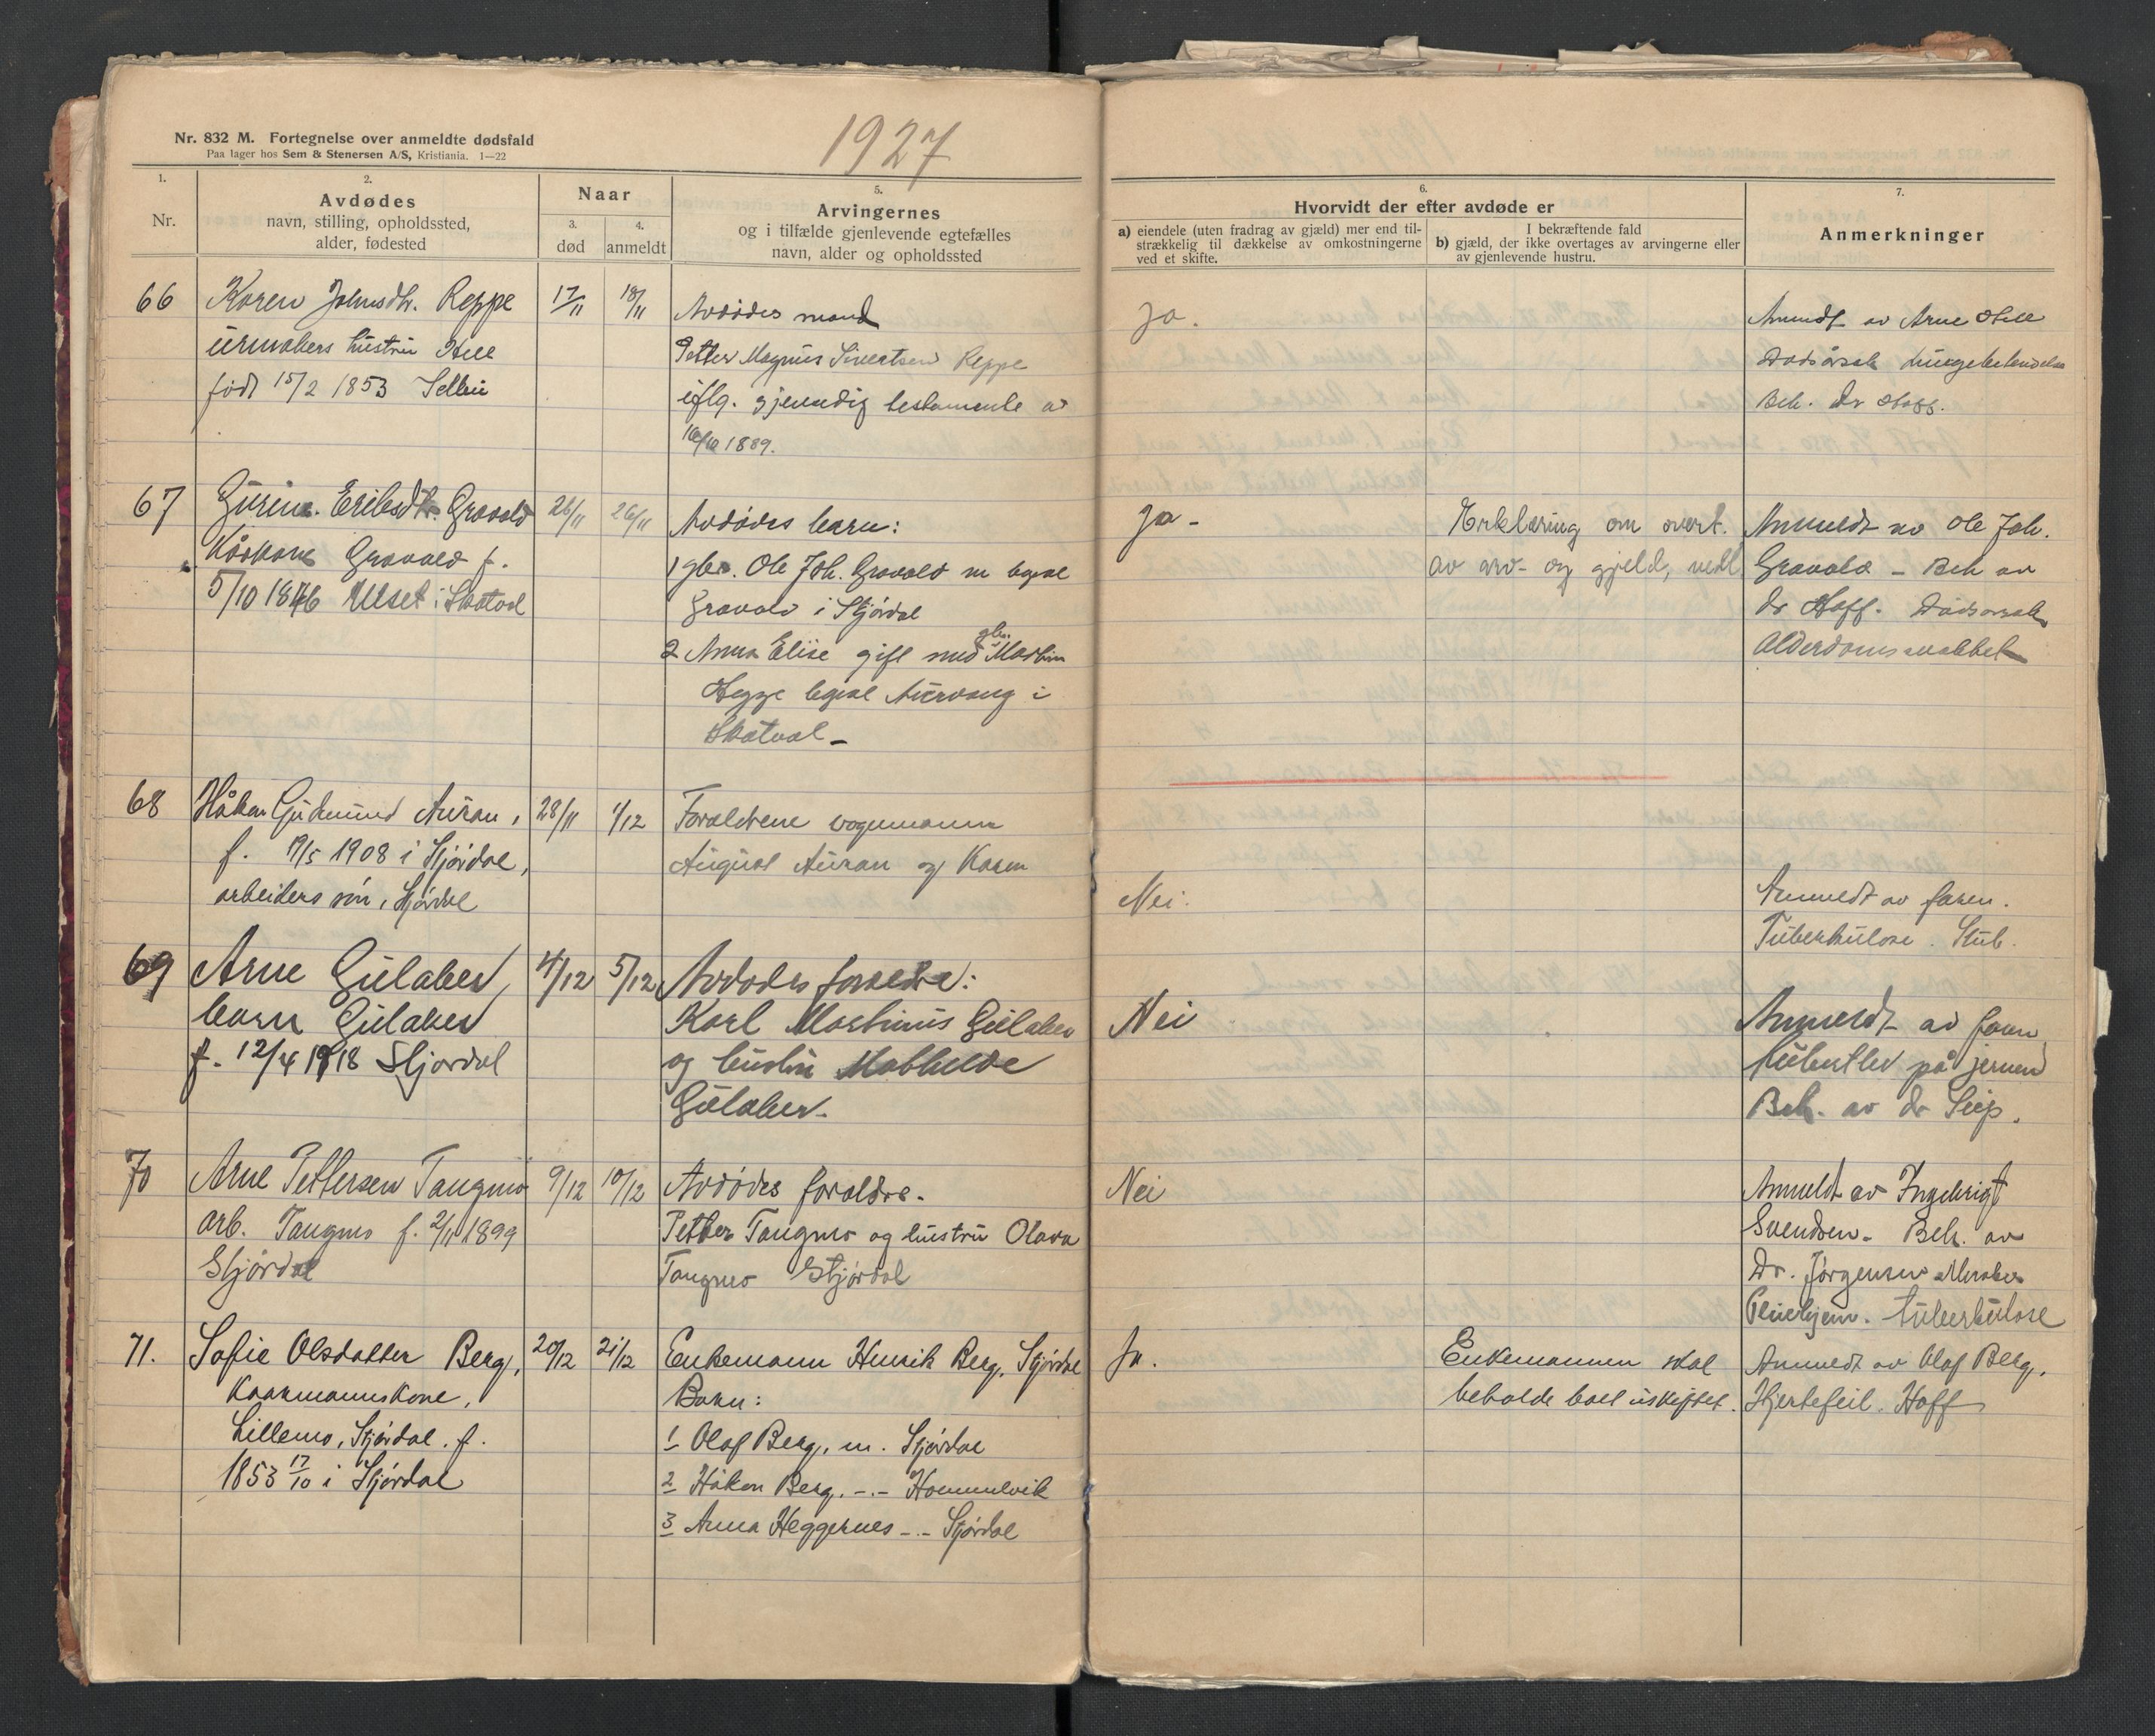 Nr. 832 M. Fortegnelse over anmeldte dødsfald
Paa lager hos Sem & Stenersen A/S, Kristiania. 1—22
1927
1.
Nr.
2.
Avdødes
navn, stilling, opholdssted,
alder, fødested
Naar
3.
død
4.
anmeldt
5.
Arvingernes
og i tilfælde gjenlevende egtefælles
navn, alder og opholdssted
6.
Hvorvidt der efter avdøde er
a) eiendele (uten fradrag av gjæld) mer end til-
strækkelig til dækkelse av omkostningerne
ved et skifte.
I bekræftende fald
b) gjæld, der ikke overtages av arvingerne eller
av gjenlevende hustru.
7.
Anmerkninger
66 Karen Johnsdtr. Reppe 17/11 18/11
urmakers hustru Hell
født 15/2 1853 Selbu
Avdødes mand
Petter Magnus Sivertsen Reppe
iflg. gjensidig testamente av
1889.
Ja.
Anmeldt av Arne Hell
Dødsårsak lungebetendelse
Beh. Dr Hoff.
67 Gurine Eriksdtr. Gravald 26/11 26/11
Kårkone Gravald f.
5/10 1846 Ulset i Skatval
Avdødes barn:
1 gbr. Ole Joh. Gravald m bopæl
Gravald i Stjørdal
2 Anna Elise gift med gbr. Martin
Hegge bopæl Aurvang i
Skatval -
Ja -
Erklæring om overt.
av arv- og gjeld, vedl
Anmeldt av Ole Joh.
Gravald - Beh av
dr Hoff. Dødsårsak
Alderdomssvakhet
68 Håkon Gudmund Auran, 28/11 1/12
f. 19/5 1908 i Stjørdal,
arbeiders søn, Stjørdal
Forældrene vognmann
August Auran og Karen
Nei.
Anmeldt av faren.
Tuberkulose. Stub.
69 Arne Gulaker 4/12 5/12
barn Gulaker
f. 12/4 1918 Stjørdal
Avdødes forældre:
Karl Martinus Gulaker
og hustru Mathilde
Gulaker.
Nei
Anmeldt av faren
på
Beh. av dr Seip.
70 Arne Pettersen Tangmo 9/12 10/12
arb. Tangmo f. 2/11 1899
Stjørdal
Avdødes forældre.
Petter Tangmo og hustru Olava
Tangmo Stjørdal
Nei
Anmeldt av Ingebrigt
Svendsen. Beh. av
Dr. Jørgensen Meraker
Pleiehjem. tuberkulose
71. Sofie Olsdatter Berg, 20/12 21/12
Kaarmannskone,
Lillemo, Stjørdal. f.
1853 17/10 i Stjørdal
Enkemann Henrik Berg, Stjørdal
Barn:
1 Olaf Berg, m. Stjørdal
2 Håkon Berg. -.- Hommelvik
3 Anna Heggernes -.- Stjørdal
Ja.
Enkemannen skal
beholde boet uskiftet.
Anmeldt av Olaf Berg.
Hjertefeil. Hoff